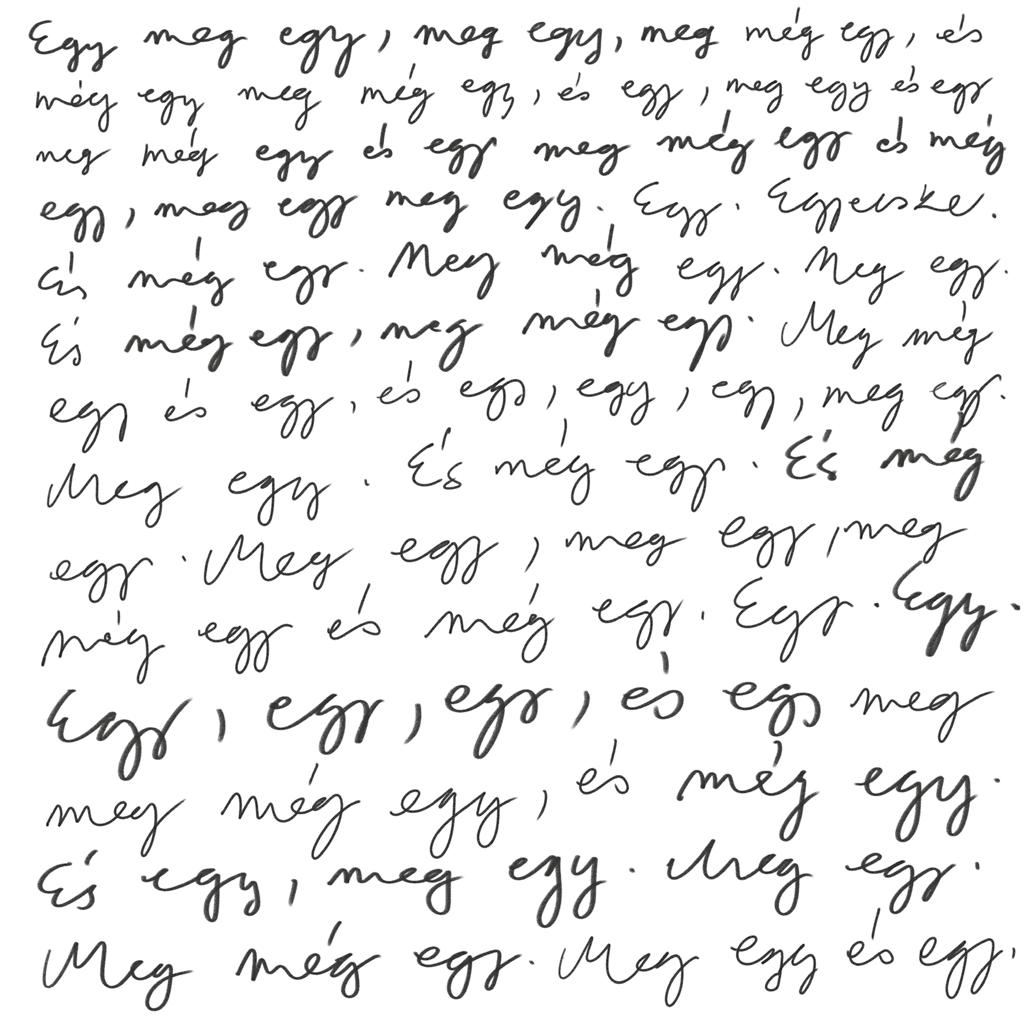 Egy meg egy, meg egy, meg még egy, és
még egy meg még egy, és egy, meg egy és egy
meg még egy és egy meg még egy és még
egy, meg egy meg egy. Egy. Egyecske.
És még egy. Meg még egy. Meg egy.
És még egy, meg még egy. Meg még
egy és egy, és egy, egy, egy, meg egy.
Meg egy. És még egy. És még
egy. Meg egy, meg egy, meg
még egy és még egy. Egy. Egy.
Egy, egy, egy, és egy meg
meg még egy, és még egy.
És egy, meg egy. Meg egy.
Meg még egy. Meg egy és egy.